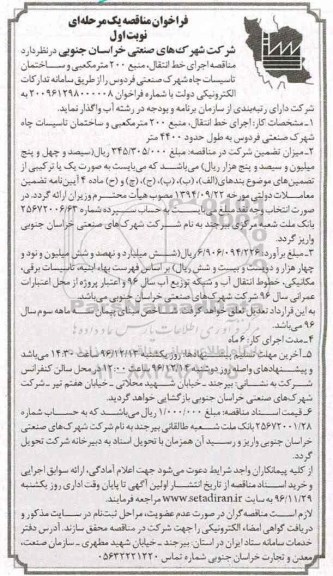 فراخوان مناقصه یک مرحله‌ای
نوبت اول
شرکت شهرک‌های صنعتی خراسان جنوبی در نظر دارد
مناقصه اجرای خط انتقال، منبع ۲۰۰ مترمکعبی و ساختمان
تاسیسات چاه شهرک صنعتی فردوس را از طریق سامانه تدارکات
الکترونیکی دولت با شماره فراخوان ۲۰۰۹۶۱۲۹۸۰۰۰۰۰۸ به
شرکت دارای رتبه‌بندی از سازمان برنامه و بودجه در رشته آب واگذار نماید.
۱ـ مشخصات کار: اجرای خط انتقال، منبع ۲۰۰ مترمکعبی و ساختمان تاسیسات چاه
شهرک صنعتی فردوس به طول حدود ۴۴۰۰ متر
۲ـ میزان تضمین شرکت در مناقصه: مبلغ ۳۴۵/۳۰۵/۰۰۰ ریال (سیصد و چهل و پنج
میلیون و سیصد و پنج هزار ریال) می‌باشد که می‌بایست به صورت یک یا ترکیبی از
تضمین‌های موضوع بندهای (الف)، (ب)، (پ)، (ج)، (چ) و (ح) ماده ۴ آیین‌نامه تضمین
معاملات دولتی مورخه ۱۳۹۴/۰۹/۲۲ مصوب هیأت محترم وزیران ارائه گردد. در
صورت انتخاب وجه نقد مبلغ می‌بایست به حساب سپرده شماره ۲۵۶۷۲۰۰۶/۶۳
بانک ملت شعبه مرکزی بیرجند به نام شرکت شهرک‌های صنعتی خراسان جنوبی
واریز گردد.
۳ـ مبلغ برآورد: ۶/۹۰۶/۰۹۴/۲۲۶ ریال (شش میلیارد و نهصد و شش میلیون و نود و
چهار هزار و دویست و بیست و شش ریال) بر اساس فهرست بهاء ابنیه، تاسیسات برقی،
مکانیکی، خطوط انتقال آب و شبکه توزیع آب سال ۹۶ و اعتبار پروژه از محل اعتبارات
عمرانی سال ۹۶ شرکت شهرک‌های صنعتی خراسان جنوبی می‌باشد.
به این قرارداد تعدیل تعلق خواهد گرفت. شاخص مبنای پیمان سه ماهه سوم سال
۹۶ می‌باشد.
۴ـ مدت اجرای کار: ۶ ماه
۵ـ آخرین مهلت تسلیم پیشنهادها: روز یکشنبه ۹۶/۱۲/۱۳ ساعت ۱۴:۳۰ می‌باشد
و پیشنهادهای واصله روز دوشنبه ۹۶/۱۲/۱۴ ساعت ۱۲:۰۰ در محل سالن کنفرانس
شرکت به نشانی: بیرجند ـ خیابان شهید محلاتی ـ خیابان هفتم تیر ـ شرکت
شهرک‌های صنعتی خراسان جنوبی بازگشایی خواهد گردید.
۶ـ قیمت اسناد مناقصه: مبلغ ۱/۰۰۰/۰۰۰ ریال می‌باشد که به حساب شماره
۲۵۶۷۲۰۰۱/۲۸ بانک ملت شعبه طالقانی بیرجند به نام شرکت شهرک‌های صنعتی
خراسان جنوبی واریز و رسید آن همزمان با تحویل اسناد به دبیرخانه شرکت تحویل
گردد.
از کلیه پیمانکاران واجد شرایط دعوت می‌شود جهت اعلام آمادگی، ارائه سوابق اجرایی
و خرید اسناد مناقصه از تاریخ انتشار اولین آگهی تا پایان وقت اداری روز یکشنبه
۹۶/۱۱/۲۹ به سایت www.setadiran.ir مراجعه فرمایند.
لازم است مناقصه گران در صورت عدم عضویت، مراحل ثبت‌نام در سایت مذکور و
دریافت گواهی امضاء الکترونیکی را جهت شرکت در مناقصه محقق سازند. آدرس دفتر
خدمات سامانه ستاد ایران در استان: بیرجند ـ خیابان شهید مطهری ـ سازمان صنعت،
معدن و تجارت خراسان جنوبی شماره تماس ۰۵۶۳۲۲۲۱۲۲۰